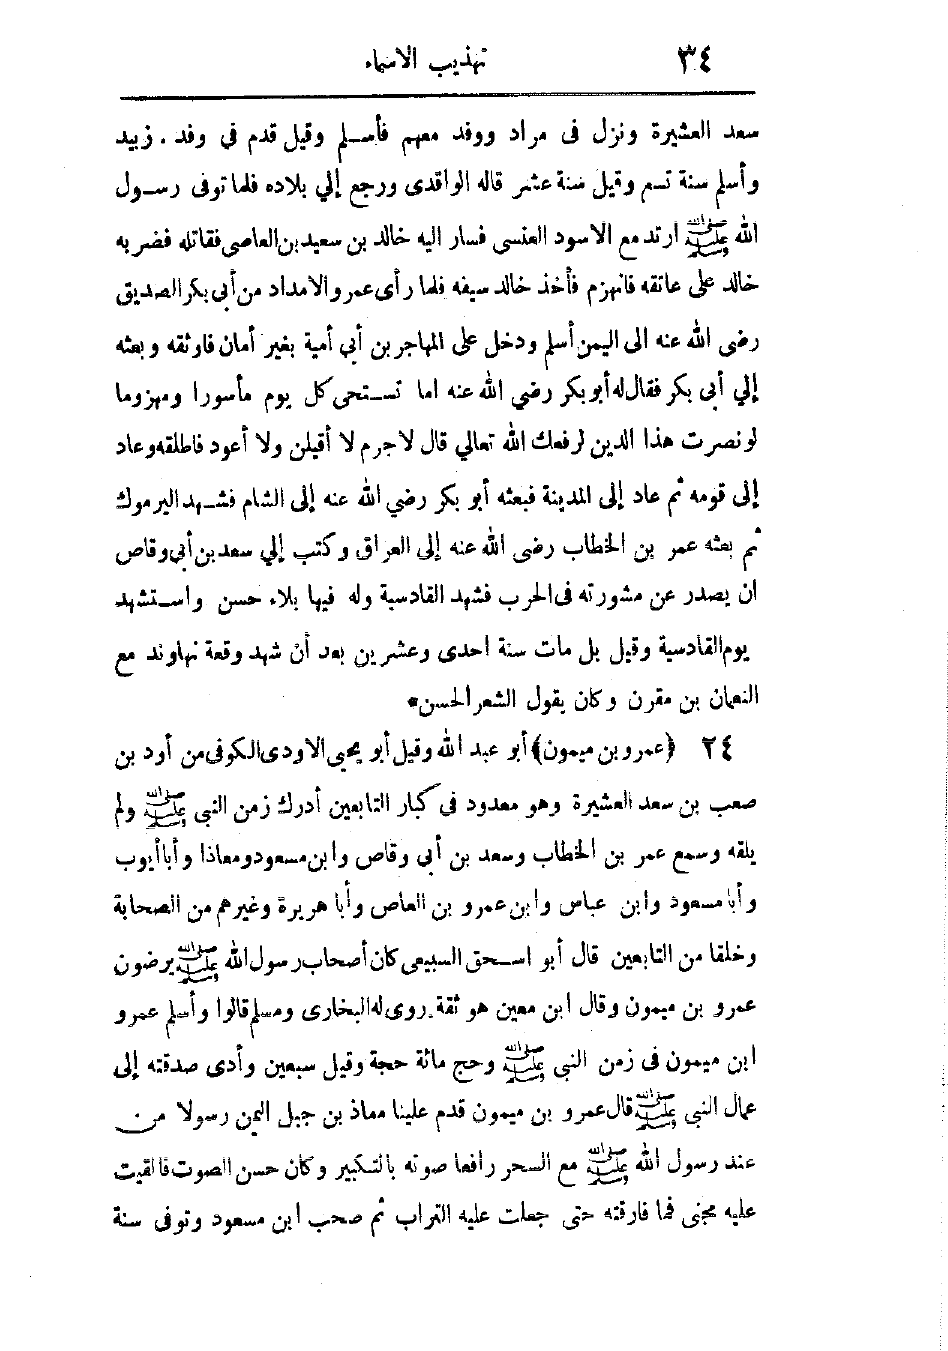 ٣٤ تهذيب الاسماء
سعد العشيرة ونزل فى مراد ووفد معهم فأسلم وقيل قدم في وفد . زبيد
وأسلم سنة تسع وقيل سنة عشر قاله الواقدى ورجع إلي بلاده فلما توفى رسول
الله ﷺ ارتد مع الاسود العنسى فسار اليه خالد بن سعيد بن العاصى فقاتله فضربه
خالد على عاتقه فانهزم فأخذ خالد سيفه فلما رأى عمرو الامداد من أبى بكر الصديق
رضى الله عنه الى اليمن أسلم ودخل على المهاجر بن أبي أمية بغير أمان فاوثقه وبعثه
إلي أبى بكر فقال له أبو بكر رضي الله عنه اما تستحى كل يوم مأسورا ومهزوما
لو نصرت هذا الدين لرفعك الله تعالي قال لا جرم لا أقبلن ولا أعود فاطلقه وعاد
إلى قومه ثم عاد إلى المدينة فبعثه أبو بكر رضي الله عنه إلى الشام فشهد اليرموك
ثم بعثه عمر بن الخطاب رضى الله عنه إلى العراق وكتب إلي سعد بن أبي وقاص
ان يصدر عن مشورته فى الحرب فشهد القادسية وله فيها بلاء حسن واستشهد
يوم القادسية وقيل بل مات سنة احدى وعشرين بعد أن شهد وقعة نهاوند مع
النعمان بن مقرن وكان يقول الشعر الحسن*
٢٤ (عمرو بن ميمون) أبو عبد الله وقيل أبو يحيى الاودى الكوفى من أود بن
صعب بن سعد العشيرة وهو معدود فى كبار التابعين أدرك زمن النبى ﷺ ولم
يلقه وسمع عمر بن الخطاب وسعد بن أبي وقاص وابن مسعود ومعاذا وأبا أيوب
وأبا مسعود وابن عباس وابن عمرو بن العاص وأبا هريرة وغيرهم من الصحابة
وخلقا من التابعين قال أبو اسحق السبيعى كان أصحاب رسول الله ﷺ يرضون
عمرو بن ميمون وقال ابن معين هو ثقة. روى له البخارى ومسلم قالوا وأسلم عمرو
ابن ميمون فى زمن النبى ﷺ وحج مائة حجة وقيل سبعين وأدى صدقته إلى
عمال النبى ﷺ قال عمرو بن ميمون قدم علينا معاذ بن جبل اليمن رسولا من
عند رسول الله ﷺ مع السحر رافعا صوته بالتكبير وكان حسن الصوت فالقيت
عليه محبتى فما فارقته حتى جعلت عليه التراب ثم صحب ابن مسعود وتوفى سنة